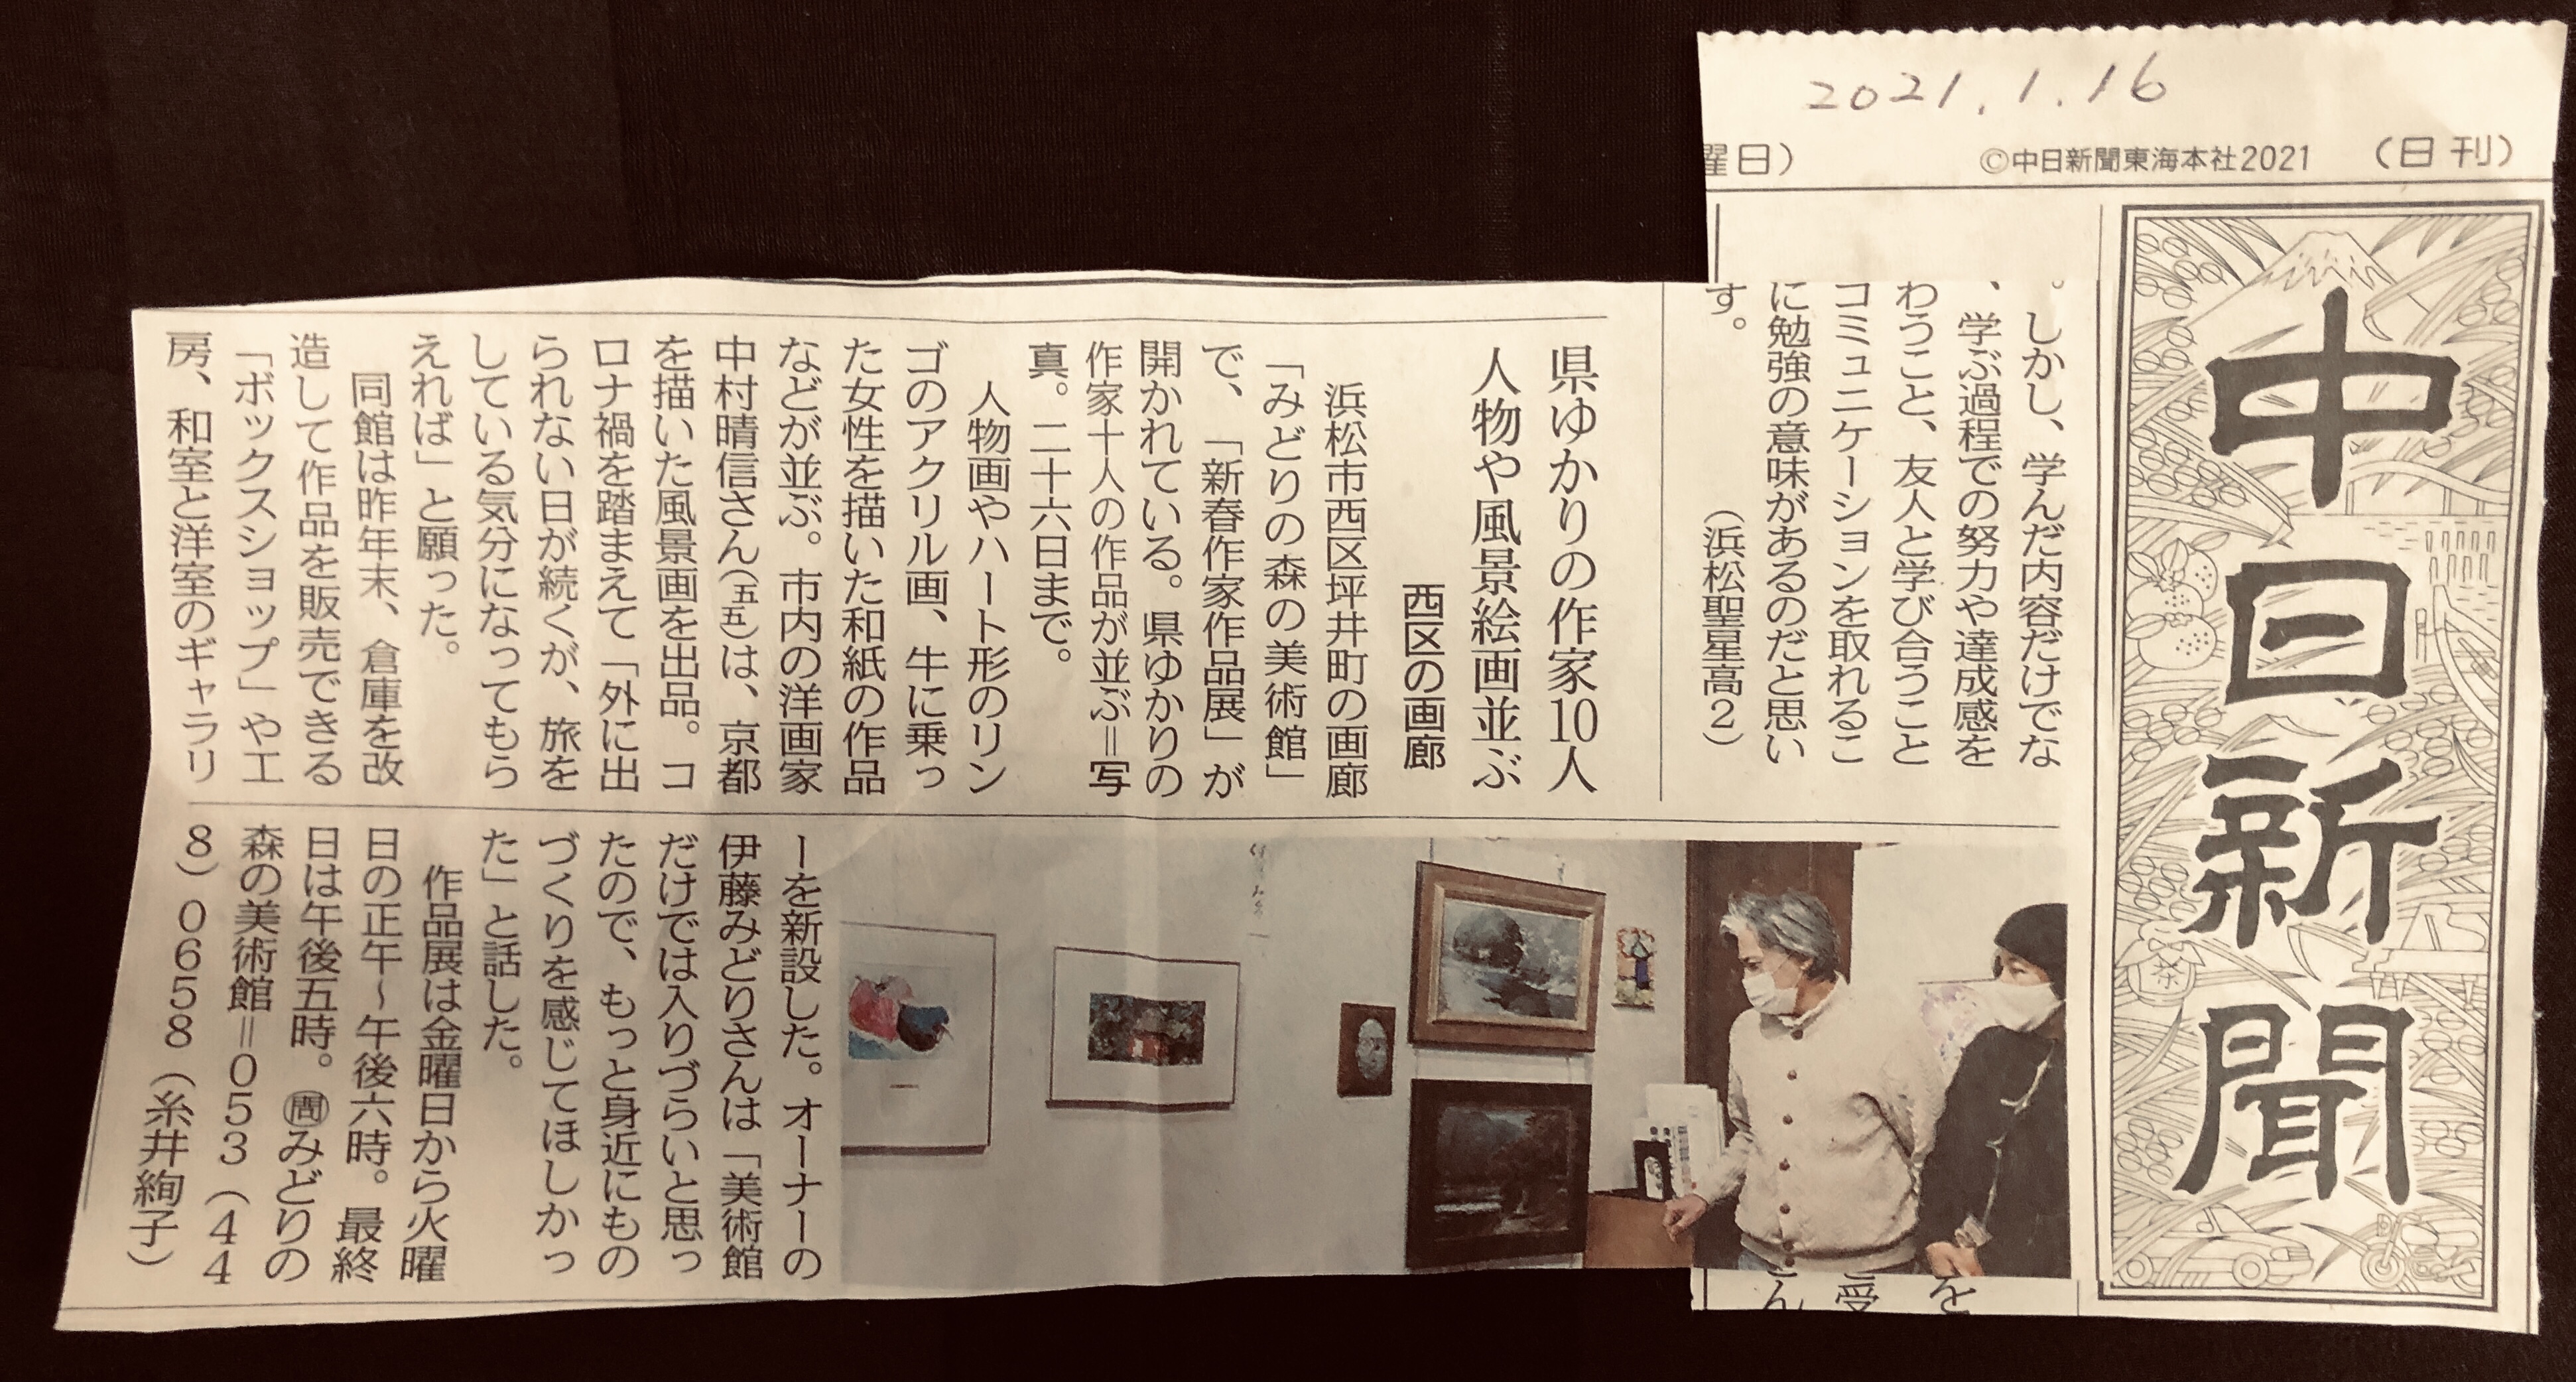 2021.1.16
曜日）
©中日新聞東海本社2021
（日刊）
中日新聞
。しかし、学んだ内容だけでな
、学ぶ過程での努力や達成感を
わうこと、友人と学び合うこと
コミュニケーションを取れるこ
に勉強の意味があるのだと思い
す。
（浜松聖星高2）
県ゆかりの作家10人
人物や風景絵画並ぶ
西区の画廊
浜松市西区坪井町の画廊
「みどりの森の美術館」
で、「新春作家作品展」が
開かれている。県ゆかりの
作家十人の作品が並ぶ＝写
真。二十六日まで。
人物画やハート形のリン
ゴのアクリル画、牛に乗っ
た女性を描いた和紙の作品
などが並ぶ。市内の洋画家
中村晴信さん（五五）は、京都
を描いた風景画を出品。コ
ロナ禍を踏まえて「外に出
られない日が続くが、旅を
している気分になってもら
えれば」と願った。
同館は昨年末、倉庫を改
造して作品を販売できる
「ボックスショップ」や工
房、和室と洋室のギャラリ
ーを新設した。オーナーの
伊藤みどりさんは「美術館
だけでは入りづらいと思っ
たので、もっと身近にもの
づくりを感じてほしかっ
た」と話した。
作品展は金曜日から火曜
日の正午～午後六時。最終
日は午後五時。㉄みどりの
森の美術館＝053（44
8）0658（糸井絢子）
を
受
ん